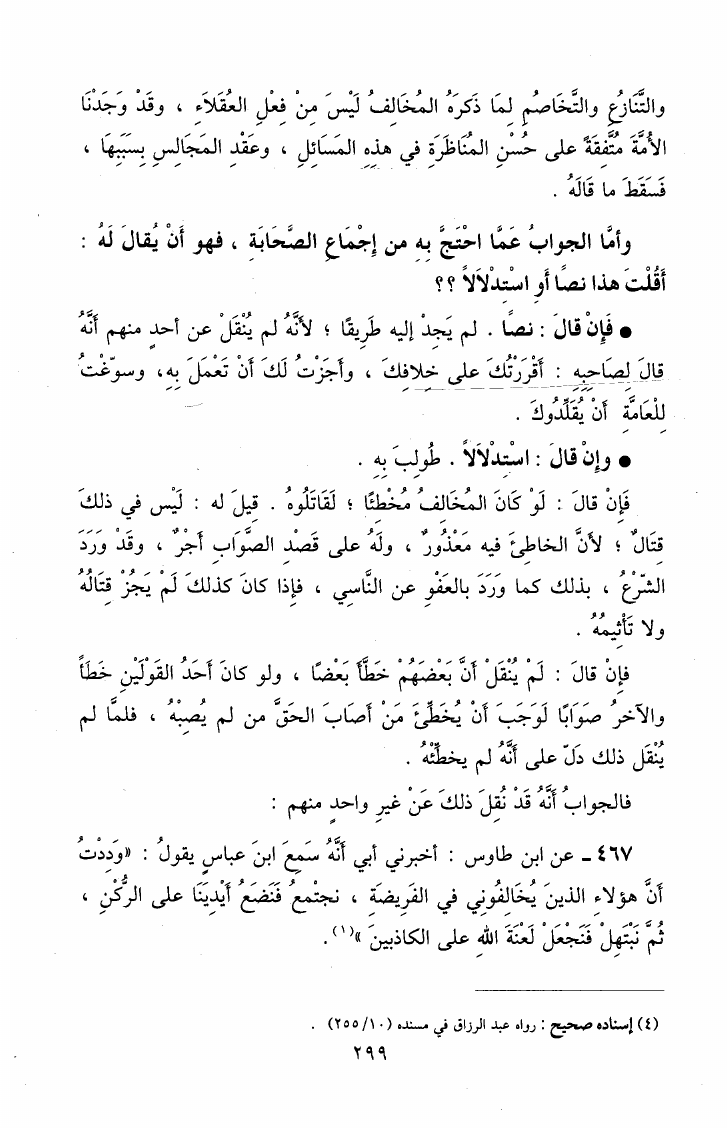 والتَّنَازُعِ والتَّخَاصُمِ لِمَا ذَكَرَهُ المُخَالِفُ لَيْسَ مِنْ فِعْلِ العُقَلَاءِ ، وقَدْ وَجَدْنَا
الأُمَّةَ مُتَّفِقَةً على حُسْنِ المُنَاظَرَةِ في هذِهِ المَسَائِلِ ، وعَقْدِ المَجَالِسِ بِسَبَبِهَا ،
فَسَقَطَ ما قَالَهُ .
وأمَّا الجوابُ عَمَّا احْتَجَّ بِهِ من إِجْمَاعِ الصَّحَابَةِ ، فهو أَنْ يُقالَ لَهُ :
أَقُلْتَ هذا نصًا أو اسْتِدْلَالاً ؟؟
● فَإِنْ قالَ : نصًا . لم يَجِدْ إليه طَرِيقًا ؛ لأَنَّهُ لم يُنْقَلْ عن أحدٍ منهم أَنَّهُ
قالَ لِصَاحِبِهِ : أَقْرَرْتُكَ على خِلافِكَ ، وأَجَزْتُ لَكَ أَنْ تَعْمَلَ بِهِ، وسوَّغْتُ
لِلعَامَّةِ أَنْ يُقَلِّدُوكَ .
● وإنْ قالَ : اسْتِدْلَالاً . طُولِبَ بِهِ .
فَإِنْ قالَ : لَوْ كَانَ المُخَالِفُ مُخْطِئًا ؛ لَقَاتَلُوهُ . قيلَ له : لَيْس في ذلكَ
قِتَالٌ ؛ لأنَّ الخاطِئَ فيه مَعْذُورٌ ، ولَهُ على قَصْدِ الصَّوَابِ أَجْرٌ ، وقَدْ وَرَدَ
الشَّرْعُ ، بذلك كما وَرَدَ بالعَفْوِ عن النَّاسِي ، فإذا كانَ كذلكَ لَمْ يَجُزْ قِتَالُهُ
ولا تَأْثِيمُهُ .
فإنْ قالَ : لَمْ يُنْقَلْ أنَّ بَعْضَهُمْ خَطَّأَ بَعْضًا ، ولو كانَ أَحَدُ القَوْلَيْنِ خَطَأً
والآخرُ صَوَابًا لَوَجَبَ أَنْ يُخَطِّئَ مَنْ أَصَابَ الحَقَّ من لم يُصِبْهُ ، فلمَّا لم
يُنْقَل ذلك دَلّ على أَنَّهُ لم يخطِّئْهُ .
فالجوابُ أَنَّهُ قَدْ نُقِلَ ذلكَ عَنْ غيرِ واحدٍ منهم :
٤٦٧ - عن ابن طاوس : أخبرني أبي أَنَّهُ سَمِعَ ابنَ عباسٍ يقولُ : «وَدِدْتُ
أَنَّ هؤلاءِ الذينَ يُخَالِفُوني في الفَرِيضَةِ ، نجتْمِعُ فَنَضَعُ أَيْدِيَنَا على الرُّكْنِ ،
ثُمَّ نَبْتَهِلْ فَنَجْعَلْ لَعْنَةَ اللهِ على الكاذبينَ »(١).
(٤) إسناده صحيح : رواه عبد الرزاق في مسنده (٢٥٥/١٠) .
٢٩٩